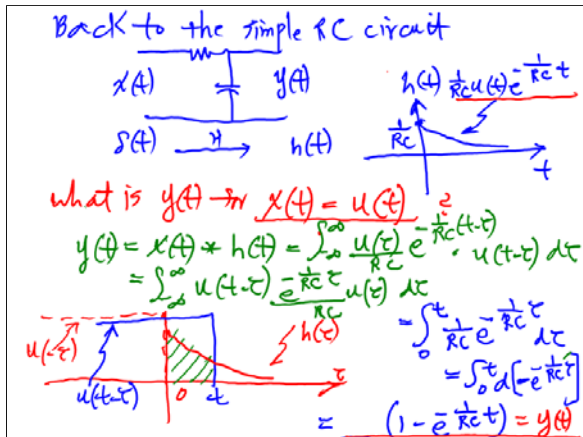 Back to the simple RC circuit
x(t) y(t)
δ(t) → H h(t)
h(t) 1/RC u(t) e^{-1/RC t}
1/RC
t
what is y(t) for x(t) = u(t) ?
y(t) = x(t) * h(t) = ∫_{-∞}^{∞} u(τ)/RC e^{-1/RC (t-τ)} · u(t-τ) dτ
= ∫_{-∞}^{∞} u(t-τ) e^{-1/RC τ}/RC u(τ) dτ
u(-τ) h(τ)
u(t-τ) 0 t τ
= ∫_0^t 1/RC e^{-1/RC τ} dτ
= ∫_0^t d[-e^{-1/RC τ}]
= (1 - e^{-1/RC t}) = y(t)